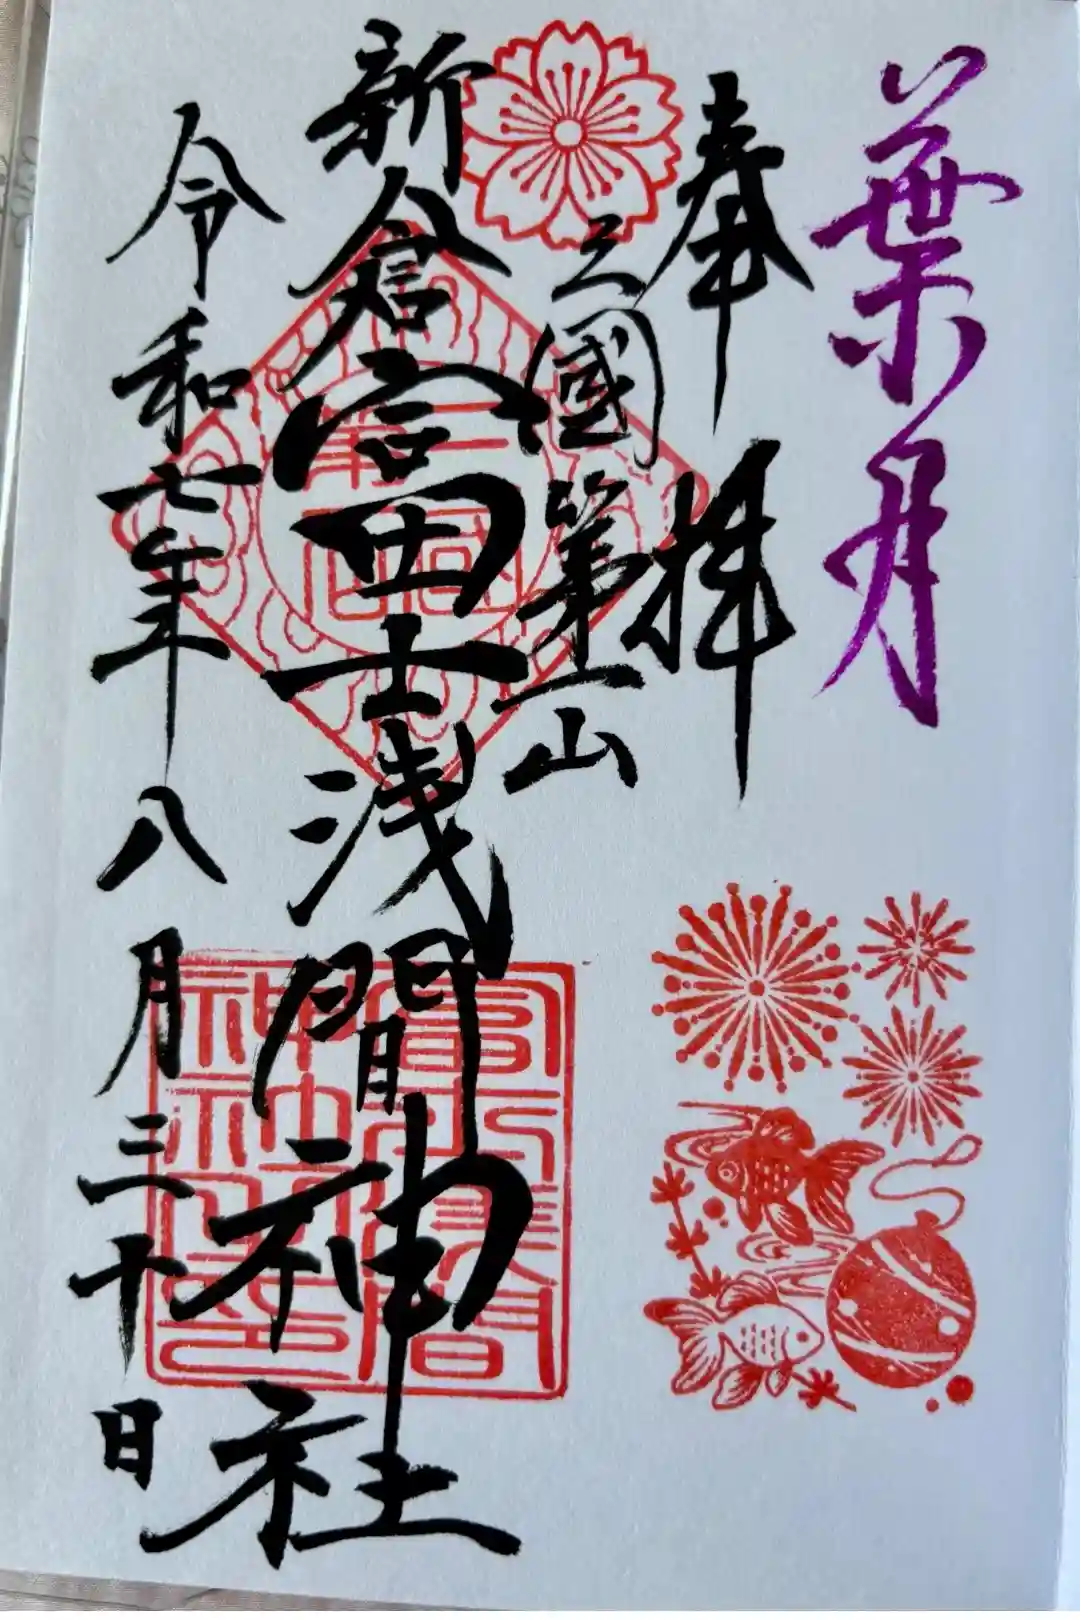 葉月
奉拝
三國第一山
新倉富士浅間神社
令和七年八月三十日